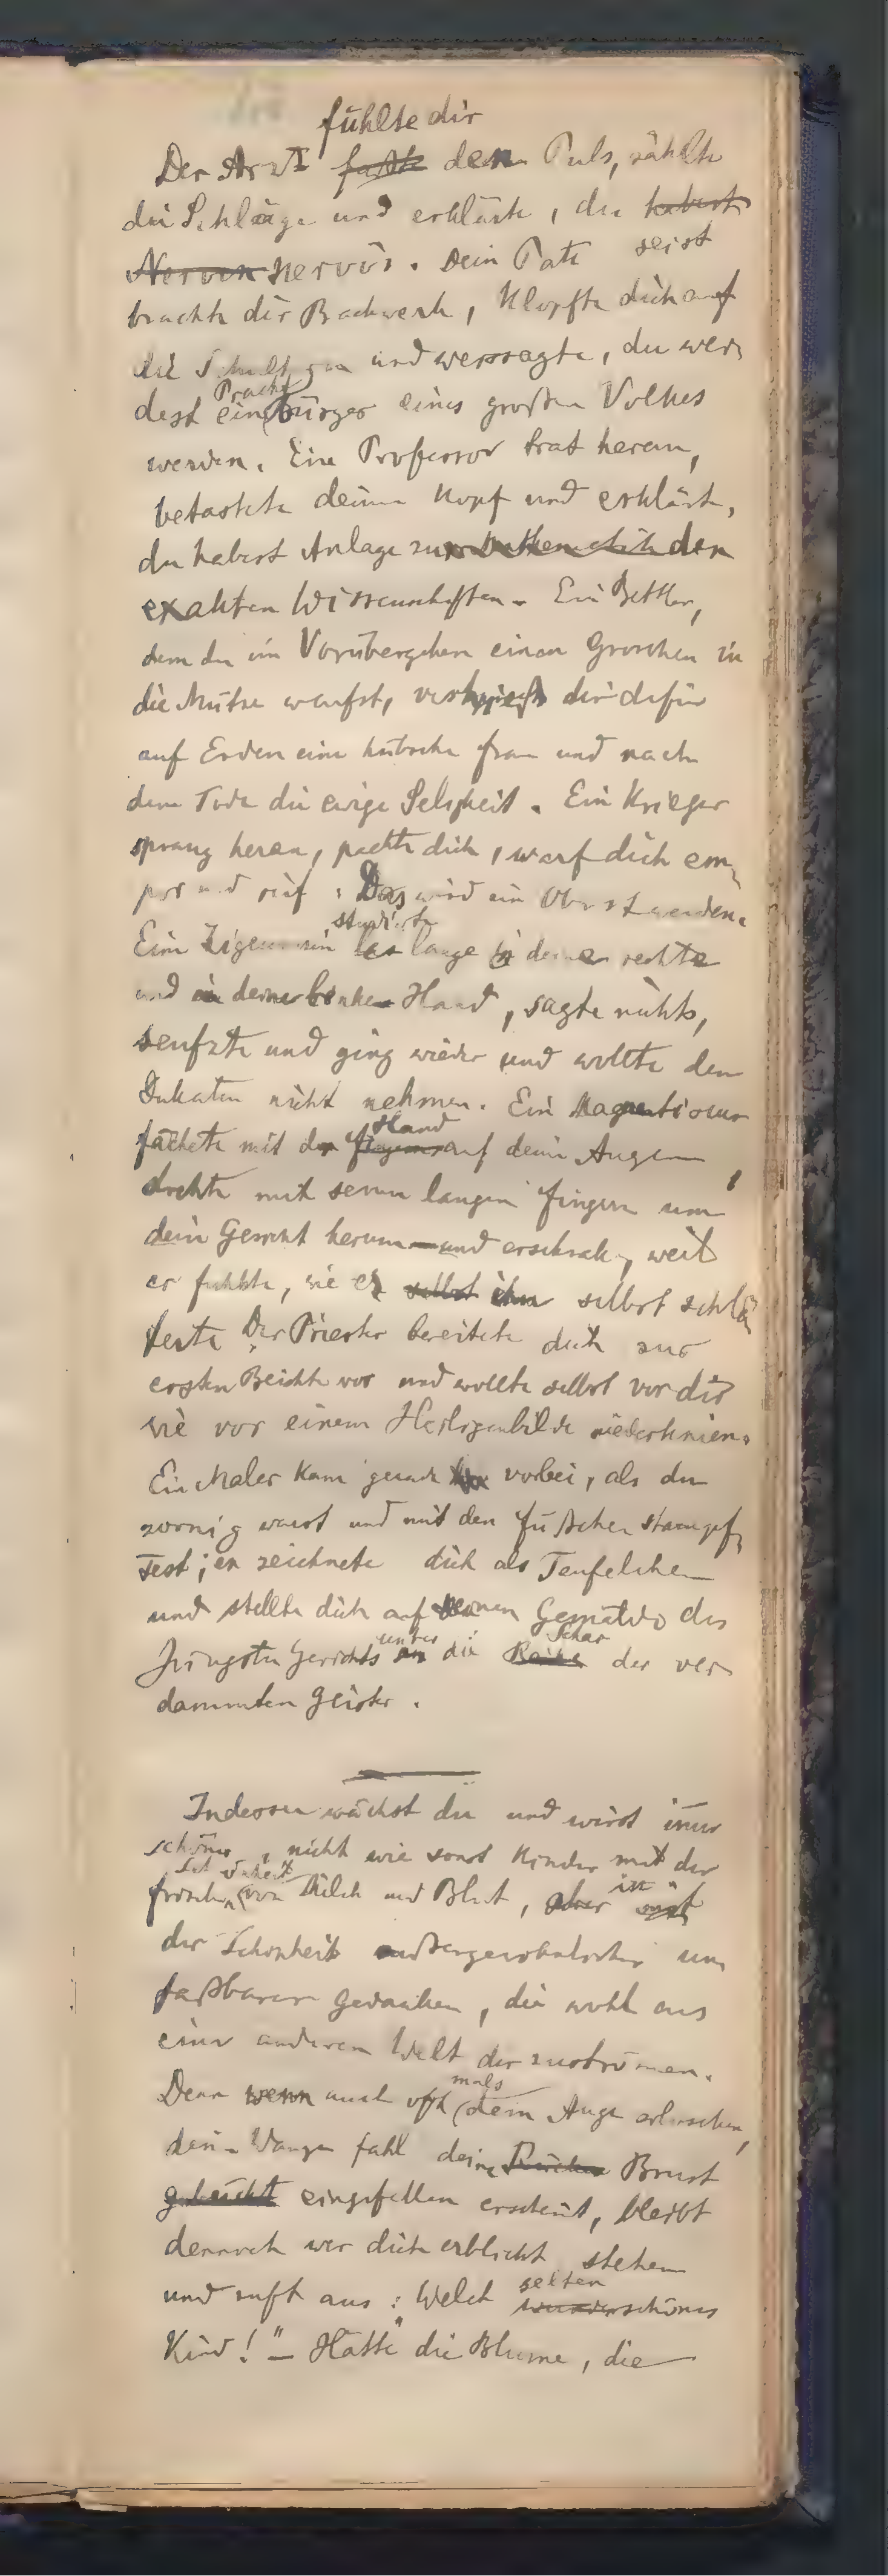 fühlte dir
Der Arzt faßte den Puls, zählte
die Schläge und erklärte, du habest
seist
Nerven nervös. Dein Pate
brachte dir Backwerk, klopfte dich auf
die Schultern und weissagte, du wer-
Pracht
dest ein Bürger eines großen Volkes
werden. Ein Professor trat heran,
betastete deinen Kopf und erklärte,
du habest Anlage zu den
exakten Wissenschaften. Ein Bettler,
dem du im Vorübergehen einen Groschen in
die Mütze warfst, verhieß dir dafür
auf Erden eine hübsche Frau und nach
dem Tode die ewige Seligkeit. Ein Krieger
sprang heran, packte dich, warf dich em-
por und rief: Das wird ein Oberst werden.
studierte
Eine Zigeunerin las lange in deine rechte
und in deine linke Hand, sagte nichts,
seufzte und ging wieder und wollte den
Dukaten nicht nehmen. Ein Magnetiseur
Hand
fächelte mit der Fingern auf deine Augen,
drehte mit seinen langen Fingern um
dein Gesicht herum und erschrak, weil
er fühlte, wie es selbst ihn selbst schlä-
ferte. Der Priester bereitete dich zur
ersten Beichte vor und wollte selbst vor dir
wie vor einem Heiligenbilde niederknien.
Ein Maler kam gerade vorbei, als du
zornig warst und mit den Füßchen stampf-
test; er zeichnete dich als Teufelchen
und stellte dich auf seinem Gemälde des
unter Schar
Jüngsten Gerichts an die Reihe der ver-
dammten Geister.
Indessen wächst du und wirst immer
schöner, nicht wie sonst Kinder mit der
Schönheit
frischen von Milch und Blut, aber in mit
der Schönheit außergewöhnlicher un-
faßbarer Gedanken, die wohl aus
einer anderen Welt dir zuströmen.
mals
Denn wenn auch oft dein Auge erloschen,
deine Wange fahl deine Brust
gebeugt eingefallen erscheint, bleibt
dennoch wer dich erblickt stehen
selten
und ruft aus: „Welch wunderschönes
Kind!" – Hätte die Blume, die